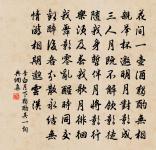 花間一壺酒獨酌無相
親舉杯邀明月對影成
三人月既不解飲影徒
隨我身暫伴月將影行
樂須及春我歌月徘徊
我舞影零亂醒時同交
歡醉後各分散永結無
情遊相期邈雲漢
李白月下獨酌其一